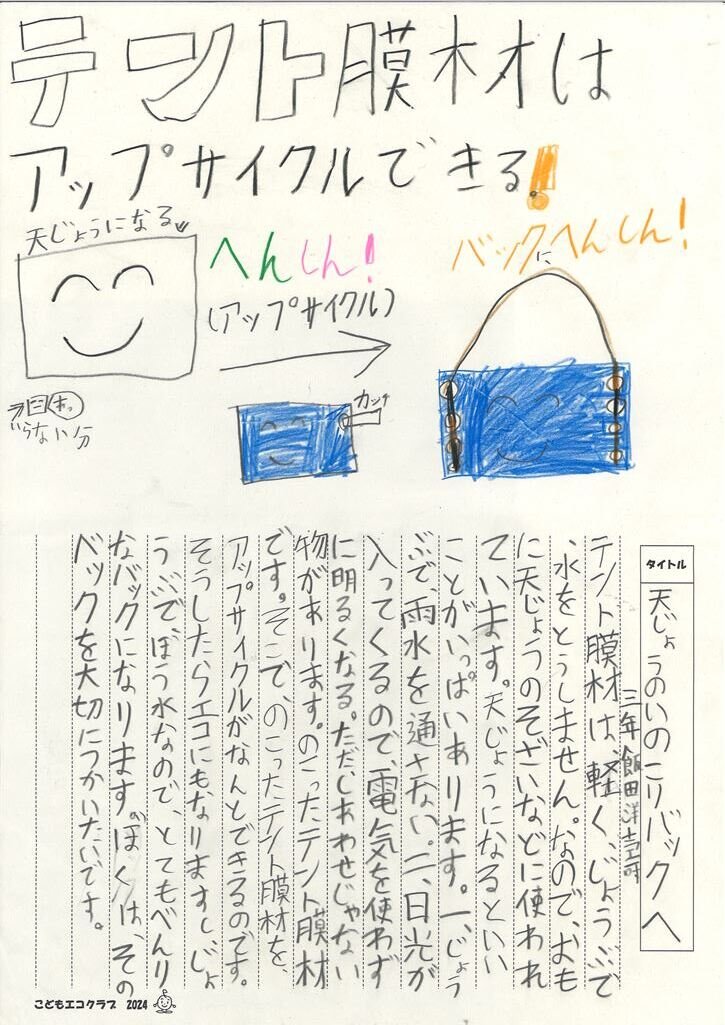 テント膜材は
アップサイクルできる!
天じょうになる
へんしん!
(アップサイクル)
バックにへんしん!
いらない分
カンチ
タイトル
天じょうのいのこりバックへ
三年 飯田洋壱
テント膜材は、軽く、じょうぶで
、水をとうしません。なので、おも
に天じょうのそざいなどに使われ
ています。天じょうになるといい
ことがいっぱいあります。一、じょう
ぶで、雨水を通さない。二、日光が
入ってくるので、電気を使わず
に明るくなる。ただしあわせじゃない
物があります。のこったテント膜材
です。そこで、のこったテント膜材を、
アップサイクルがなんとできるのです。
そうしたらエコにもなりますしじょ
うぶでぼう水なので、とてもべんり
なバックになります。ぼくは、その
バックを大切につかいたいです。
こどもエコクラブ 2024